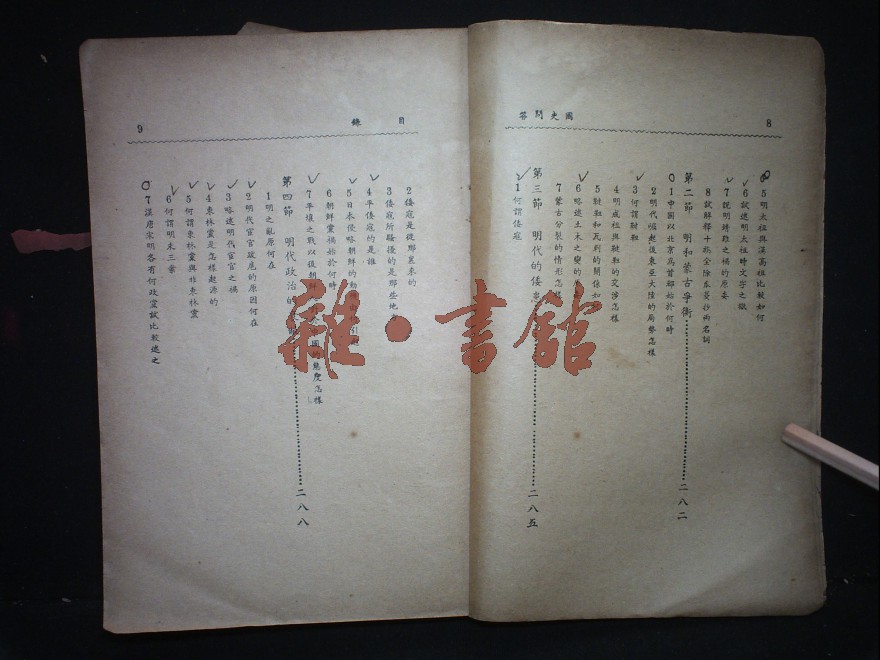 8
國史問答
5明太祖與漢高祖比較如何
6試述明太祖時文字之獄
7說明靖難之禍的原委
8試解釋十族全除瓜蔓抄術名詞
第二節 明和蒙古爭衡 二八二
1中國以北京為首都始於何時
2明代崛起後東亞大陸的局勢怎樣
3何謂韃靼
4明成祖與韃靼的交涉怎樣
5韃靼和瓦剌的關係如
6略述土木之變的
7蒙古分裂的情形怎
第三節 明代的倭寇 二八五
1何謂倭寇
9
目錄
2倭寇是從那裏來的
3倭寇所騷擾的是那些地
4平倭寇的是誰
5日本侵略朝鮮的動
6朝鮮黨禍始於何時
7平壤之戰以後朝鮮 中國的態度怎樣
第四節 明代政治的 二八八
1明之亂原何在
2明代宦官政危的原因何在
3略述明代宦官之禍
4東林黨是怎樣起源的
5何謂東林黨與非東林黨
6何謂明末三案
7漢唐宋明各有何政黨試比較述之
雜·書館